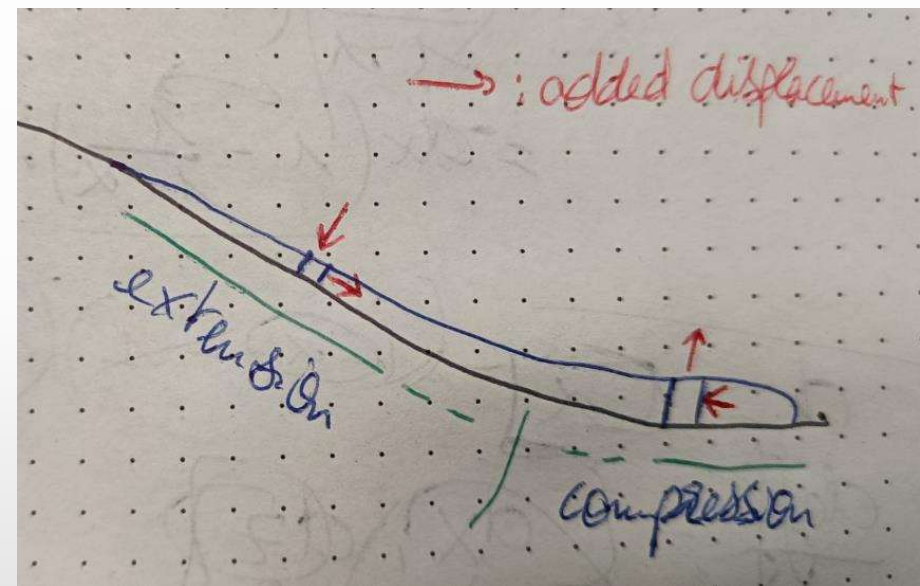 → : added displacement.
extension
compression